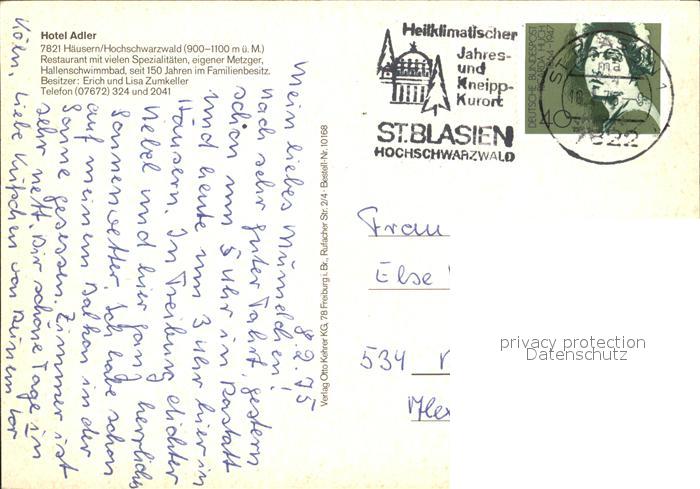 Hotel Adler
7821 Häusern/Hochschwarzwald (900–1100 m ü. M.)
Restaurant mit vielen Spezialitäten, eigener Metzger,
Hallenschwimmbad, seit 150 Jahren im Familienbesitz.
Besitzer: Erich und Lisa Zumkeller
Telefon (07672) 324 und 2041
Heilklimatischer
Jahres-
und
Kneipp-
Kurort
ST. BLASIEN
HOCHSCHWARZWALD
DEUTSCHE BUNDESPOST
40
7822
8.2.75
Mein liebes
nach sehr guter Fahrt, gestern
schon um 5 Uhr in Rastatt
und heute um 3 Uhr hier in
Häusern. In Freiburg dichter
Nebel und hier ganz herrliches
Sonnenwetter. Ich habe schon
auf meinem Balkon in der
Sonne gesessen. Zimmer ist
sehr nett. Dir schöne Tage in
Köln. Liebe Küßchen von Deinem
Verlag Otto Kehrer KG, 78 Freiburg i. Br., Rufacher Str. 2/4 · Bestell-Nr. 10168
Frau
Else
534
privacy protection
Datenschutz